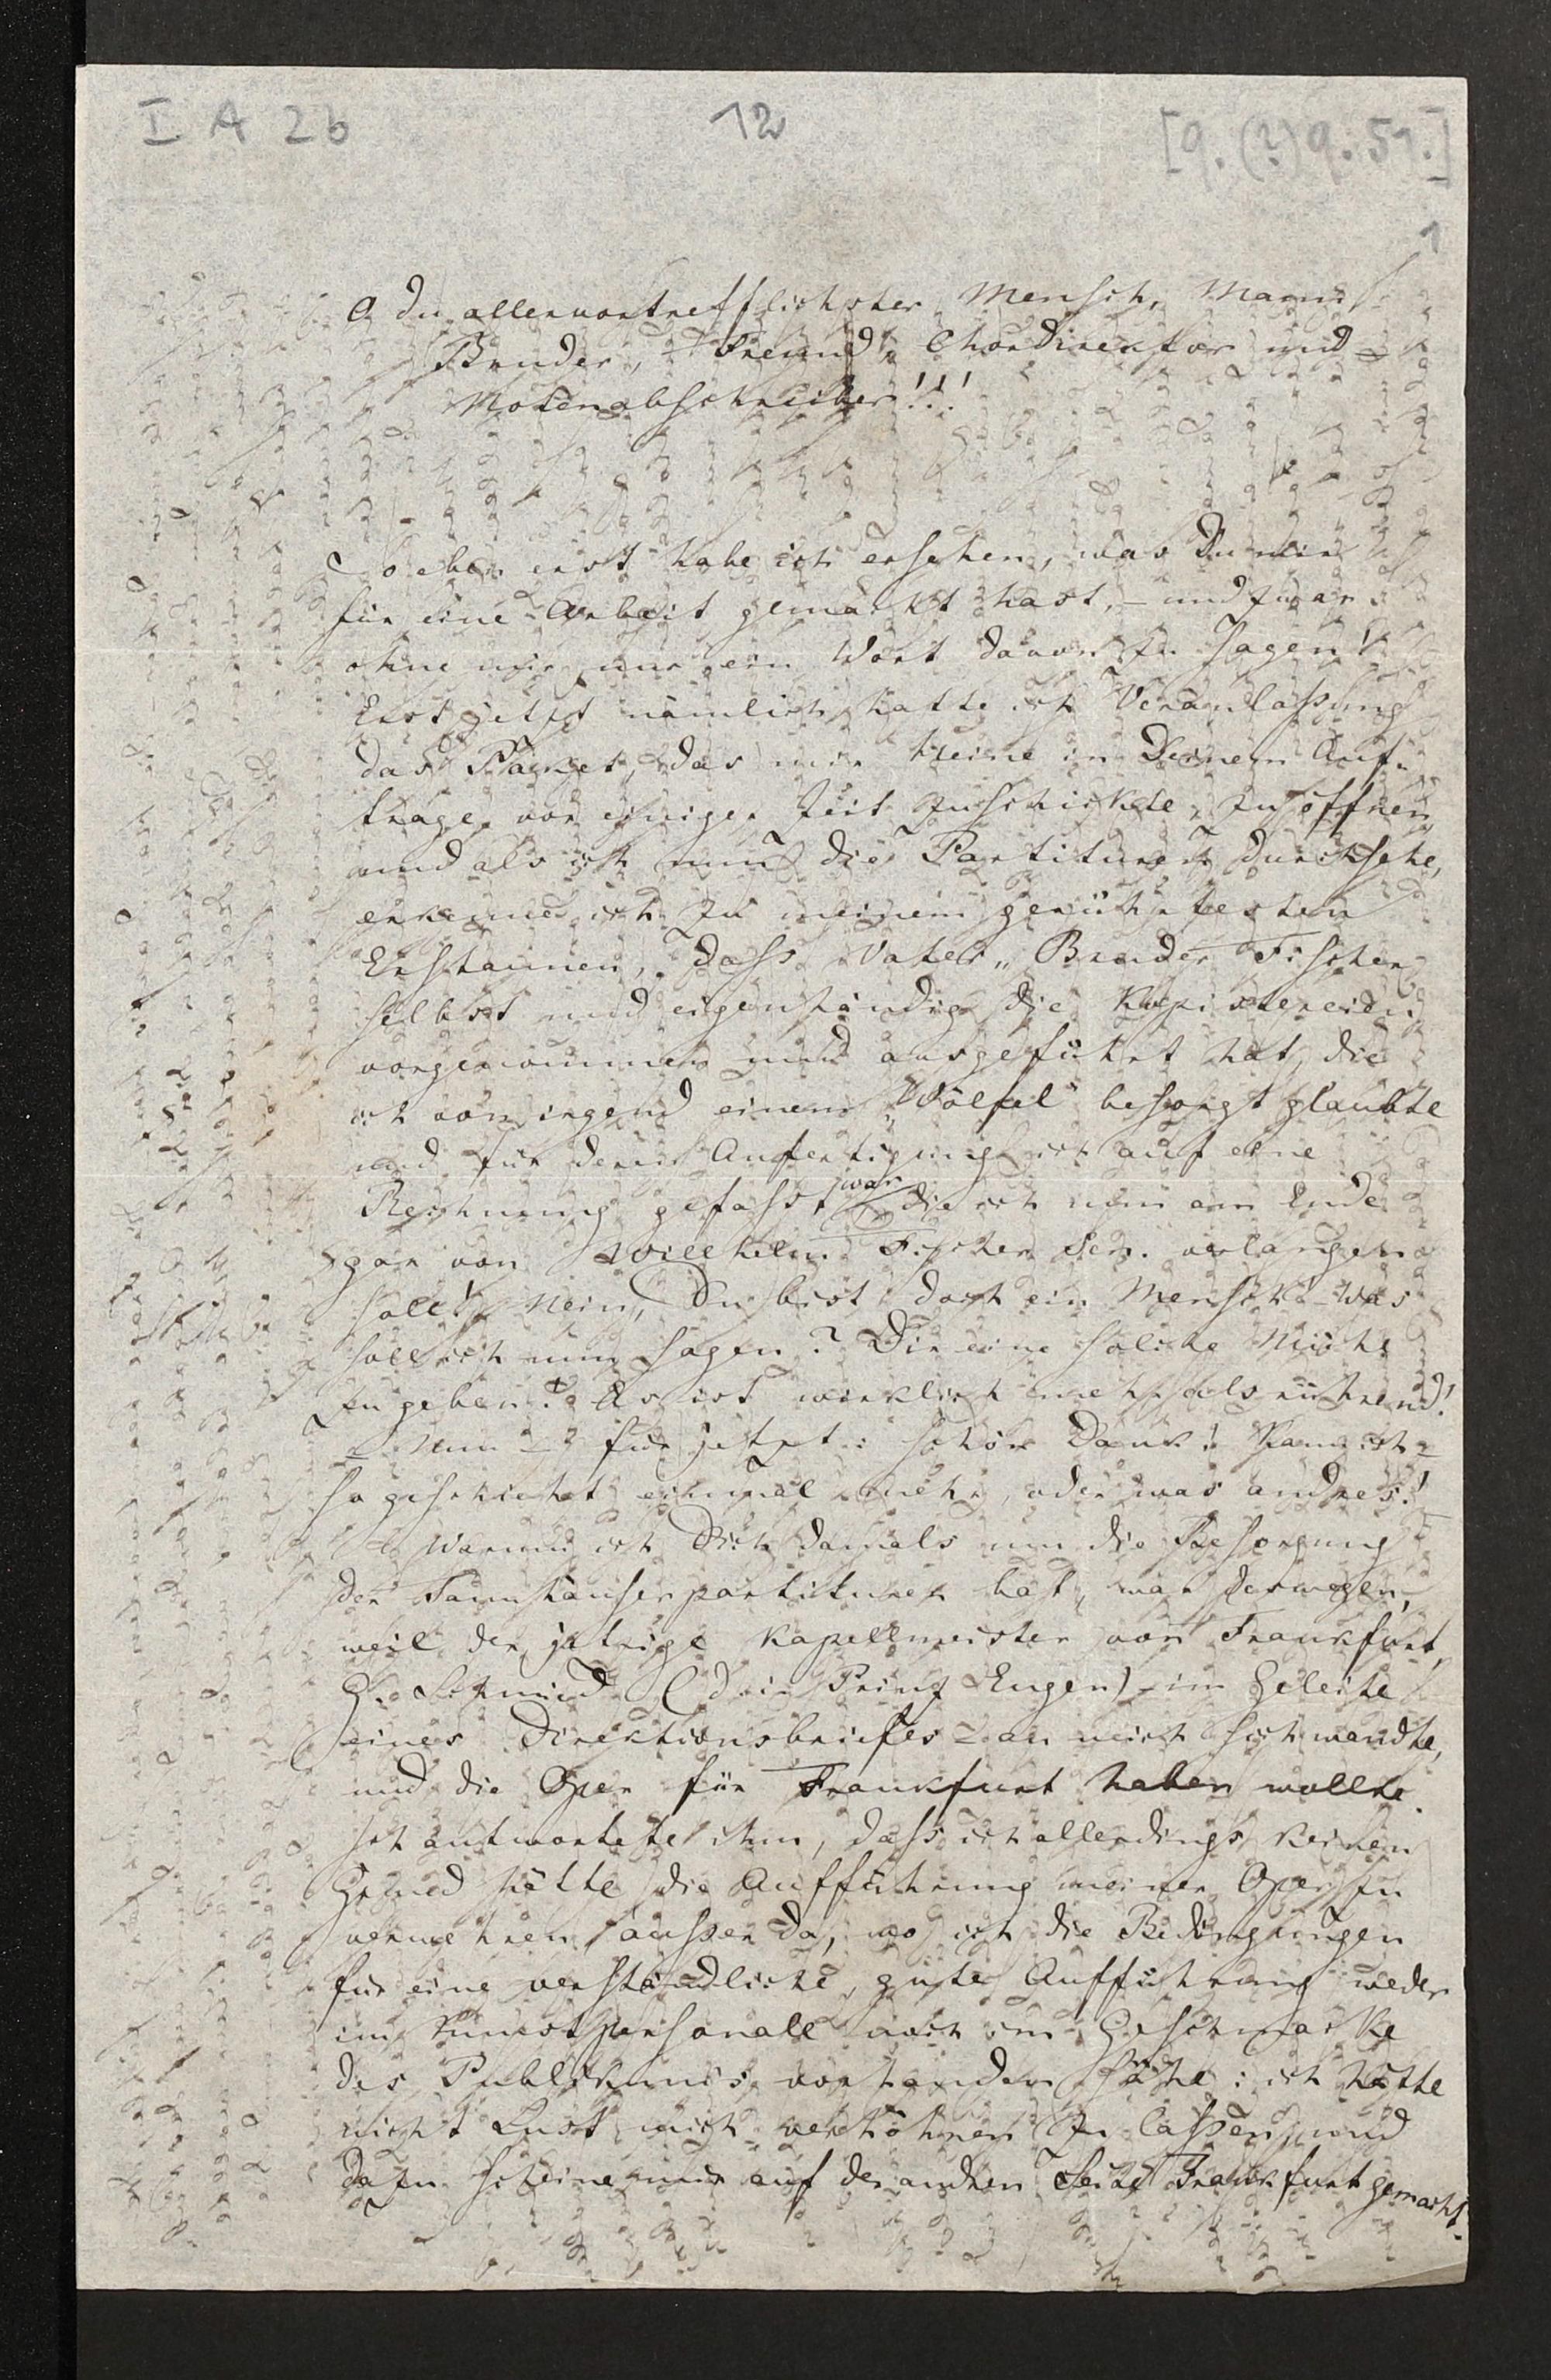 I A 2b
12
[9.(?)9.51.]
1
O du allervortrefflichster Mensch, Mann,
Bruder, Freund, Chordirektor und
Notenabschreiber!!!
Soeben erst habe ich ersehen, was Du mir
für eine Arbeit gemacht hast, – und zwar
ohne mir nur ein Wort davon zu sagen!
Erst jetzt nämlich hatte ich Veranlaßung
das Packet, das mir Heine in Deinem Auf-
trage vor einiger Zeit zuschickte, zu öffnen,
und als ich nun die Partituren durchsehe,
erkenne ich zu meinem gerührtesten
Erstaunen, daß Vater, Bruder Fischer
selbst und eigenhändig die Kopistereien
vorgenommen und ausgeführt hat, die
ich von irgend einem „Wölfel" besorgt glaubte
und für deren Anfertigung ich auf eine
Rechnung gefasst war, die ich nun am Ende
gar von Wilhelm Fischer Sen. verlangen
soll! Nein, Du bist doch ein Mensch! – Was
soll ich nun sagen? Dir eine solche Mühe
zu geben? Es ist wirklich mehr als rührend!
– Nun – für jetzt: schön Dank! Kann ich –
so geschieht einmal mehr, oder was andres!
– Warum ich Dich damals um die Besorgung
der Tannhäuserpartituren bat, war deswegen,
weil der jetzige Kapellmeister von Frankfurt,
G. Schmidt (drin Prinz Eugen) – im Geleite
eines Direktionsbriefes – an mich sich wandte,
und die Oper für Frankfurt haben wollte.
Ich antwortete ihm, daß ich allerdings keinen
Grund hätte die Aufführung meiner Oper zu
verwehren, außer da, wo ich die Bedingungen
für eine verständliche, gute Aufführung weder
im Kunstpersonale noch im Geschmacke
des Publikums vorhanden sähe: ich hätte
nicht Lust mich verhöhnen zu laßen, und
dazu scheine mir auf der andren Seite Frankfurt gemacht.